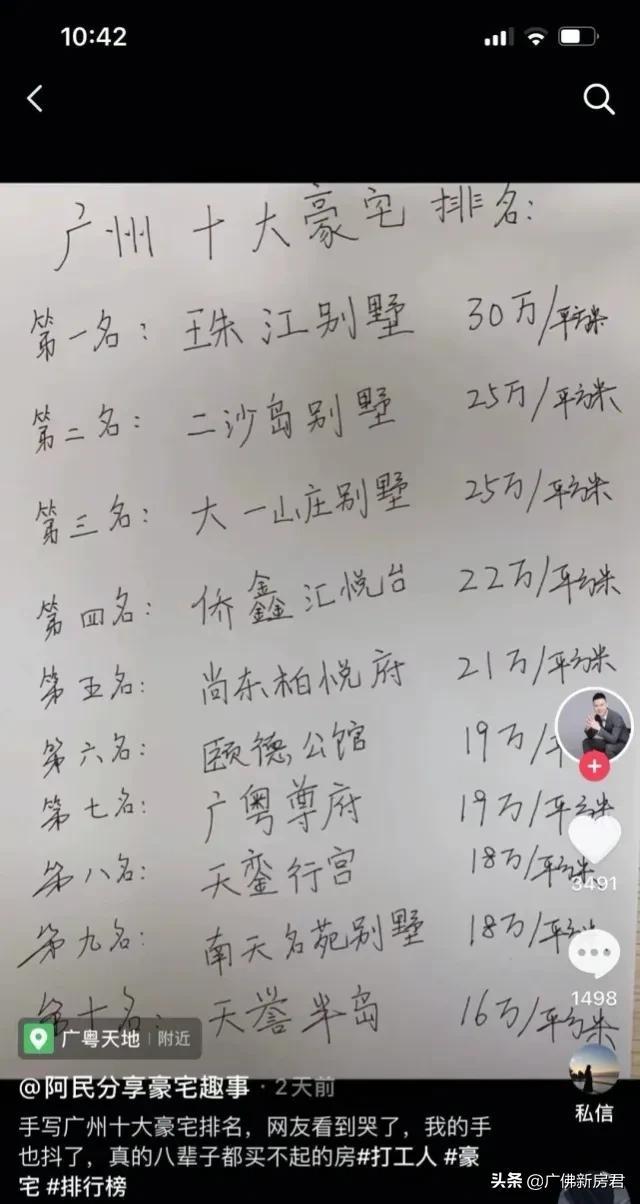 10:42
广州十大豪宅排名:
第一名: 珠江别墅 30万/平方米
第二名: 二沙岛别墅 25万/平方米
第三名: 大一山庄别墅 25万/平方米
第四名: 侨鑫汇悦台 22万/平方米
第五名: 尚东柏悦府 21万/平方米
第六名: 颐德公馆 19万/平
第七名: 广粤尊府 19万/平方米
第八名: 天銮行宫 18万/平方米
第九名: 南天名苑别墅 18万/平方米
第十名: 天誉半岛 16万/平方米
3491
1498
私信
广粤天地 附近
@阿民分享豪宅趣事 · 2天前
手写广州十大豪宅排名，网友看到哭了，我的手
也抖了，真的八辈子都买不起的房#打工人 #豪
宅 #排行榜
头条 @广佛新房君